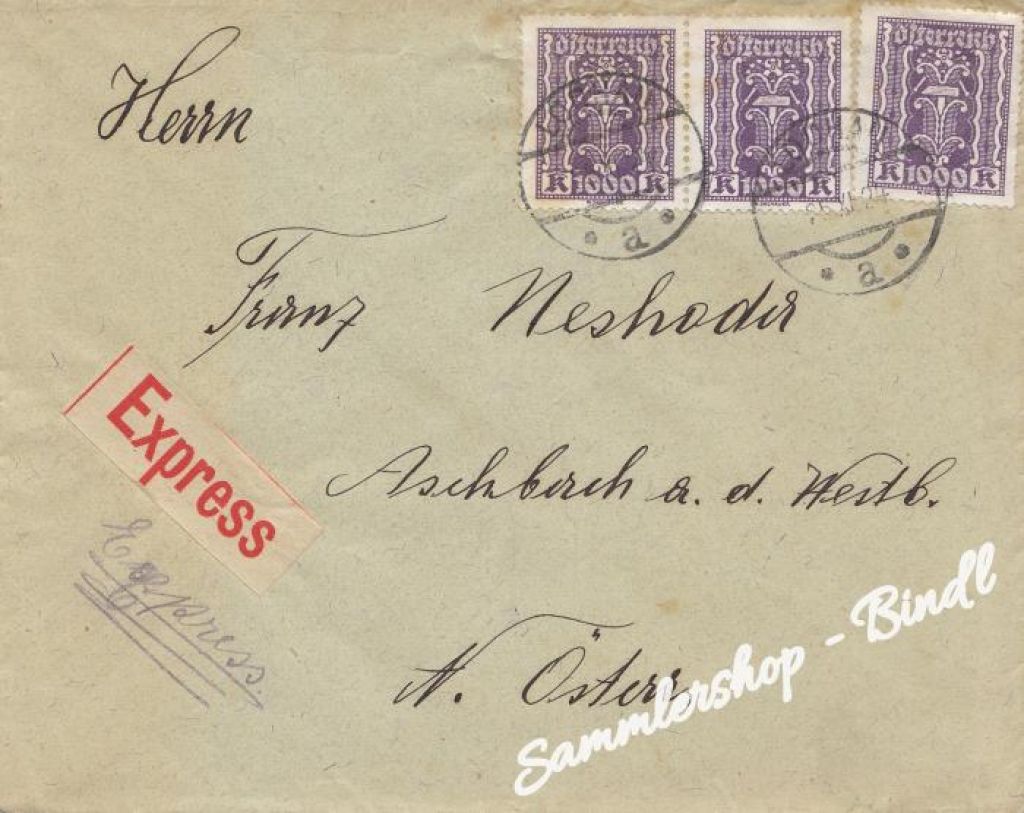 Österreich Österreich Österreich
K 1000 K K 1000 K K 1000 K
a a
Herrn
Franz Neshoder
Express
Aschbach a. d. Westb.
Express.
N. Österr
Sammlershop - Bindl